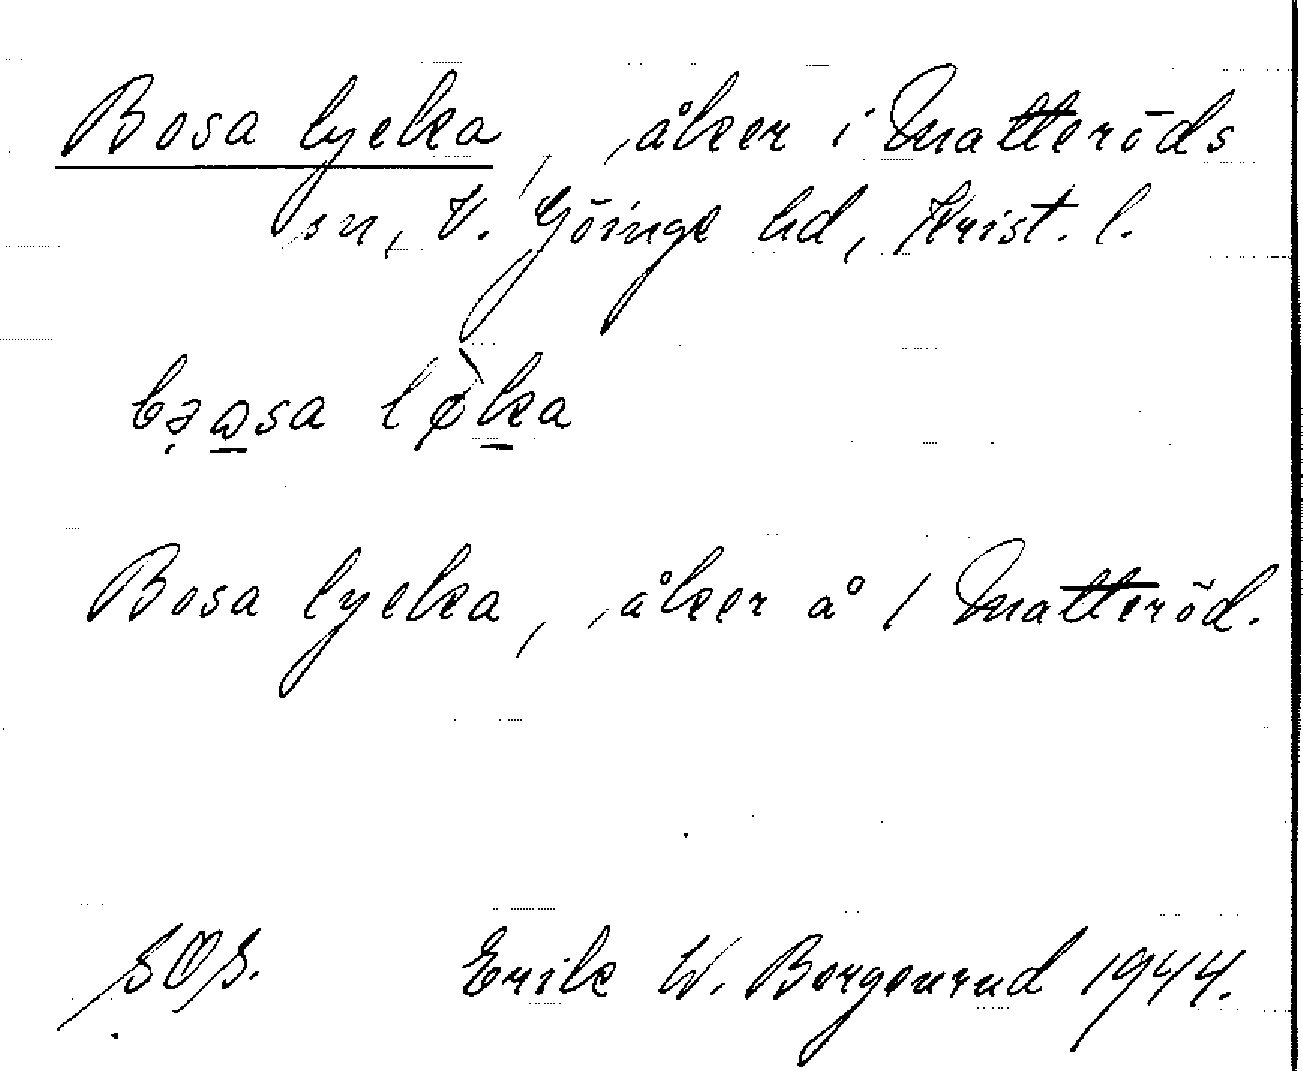 Bosa lycka, åker i Matteröds
sn, V. Göinge hd, Krist. l.
Bosa lycka, åker å 1 Matteröd.
SOS. Erik W. Borgenrud 1944.